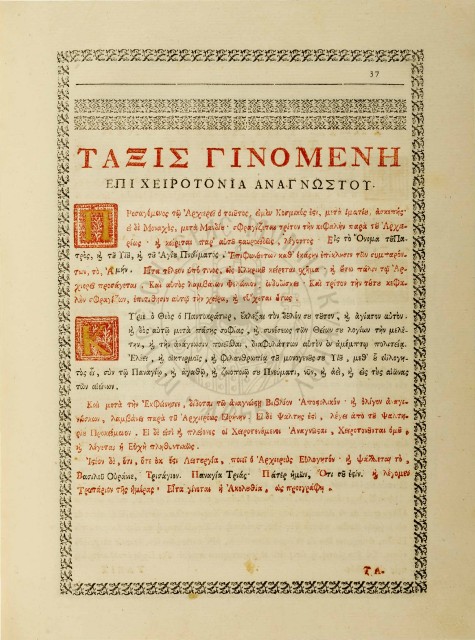 37
ΤΑΞΙΣ ΓΙΝΟΜΕΝΗ
ΕΠΙ ΧΕΙΡΟΤΟΝΙΑ ΑΝΑΓΝΩΣΤΟΥ.
Προσαγόμενος τῷ Ἀρχιερεῖ ὁ τοιοῦτος, εἰ μὲν Κοσμικός ἐστι, μετὰ ἱματίου, ἀσκεπής·
εἰ δὲ Μοναχὸς, μετὰ Μανδύου· σφραγίζεται τρίτον τὴν κεφαλὴν παρὰ τοῦ Ἀρχιε-
ρέως· ἢ κείρεται παρ' αὐτοῦ σταυροειδῶς, λέγοντος· Εἰς τὸ Ὄνομα τοῦ Πα-
τρὸς, καὶ τοῦ Υἱοῦ, καὶ τοῦ Ἁγίου Πνεύματος· Ἐπιφωνούντων καθ' ἑκάστην ἐπίκλησιν τῶν συμπαρόν-
των, τὸ, Ἀμήν. Εἶτα τέλειον ὑπό τινος, ὡς Κληρικῷ κείρεται σχῆμα· καὶ οὕτω πάλιν τῷ Ἀρ-
χιερεῖ προσάγεται· Καὶ αὐτὸς λαμβάνων Φελώνιον ἐνδιδύσκει· Καὶ τρίτον τὴν τούτου κεφα-
λὴν σφραγίζων, ἐπιτιθησιν αὐτῷ τὴν χεῖρα, καὶ εὔχεται οὕτως·
Κύριε ὁ Θεὸς ὁ Παντοκράτωρ, ἔκλεξαι τὸν δοῦλόν σου τοῦτον, καὶ ἁγίασον αὐτόν·
καὶ δὸς αὐτῷ μετὰ πάσης σοφίας, καὶ συνέσεως τῶν Θείων σου λογίων τὴν μελέ-
την, καὶ τὴν ἀνάγνωσιν ποιεῖσθαι, διαφυλάττων αὐτὸν ἐν ἀμέμπτῳ πολιτείᾳ.
Ἐλέει, καὶ οἰκτιρμοῖς, καὶ φιλανθρωπίᾳ τοῦ μονογενοῦς σου Υἱοῦ, μεθ' οὗ εὐλογη-
τὸς εἶ, σὺν τῷ Παναγίῳ, καὶ ἀγαθῷ, καὶ ζωοποιῷ σου Πνεύματι, νῦν, καὶ ἀεὶ, καὶ εἰς τοὺς αἰῶνας
τῶν αἰώνων.
Καὶ μετὰ τὴν Ἐκφώνησιν, δίδοται τῷ ἀναγνώστῃ Βιβλίον Ἀποστολικόν· καὶ ὀλίγον ἀναγι-
νώσκων, λαμβάνει παρὰ τοῦ Ἀρχιερέως Εἰρήνην. Εἰ δὲ Ψάλτης ἐστὶ, λέγει ἀπὸ τοῦ Ψαλτη-
ρίου Προκείμενον. Εἰ δέ εἰσι καὶ πλείονες οἱ Χειροτονούμενοι Ἀναγνῶσται, Χειροτονοῦνται ὁμοῦ,
καὶ λέγεται ἡ Εὐχὴ πληθυντικῶς.
Ἰστέον δὲ, ὅτι, ὅτε οὐκ ἔστι Λειτουργία, ποιεῖ ὁ Ἀρχιερεὺς Εὐλογητόν· καὶ ψάλλεται τὸ,
Βασιλεῦ Οὐράνιε, Τρισάγιον. Παναγία Τριάς· Πάτερ ἡμῶν, Ὅτι σοῦ ἐστιν. καὶ λέγομεν
Τροπάριον τῆς ἡμέρας· Εἶτα γίνεται ἡ Ἀκολουθία, ὡς προεγράφη.